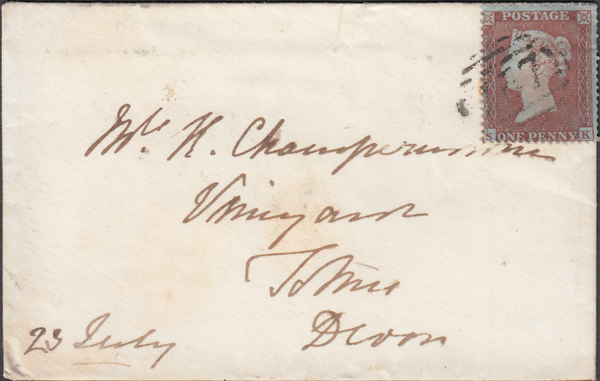 POSTAGE
S ONE PENNY K
Mrs H. Champernowne
Vineyard
Totnes
Devon
23 July